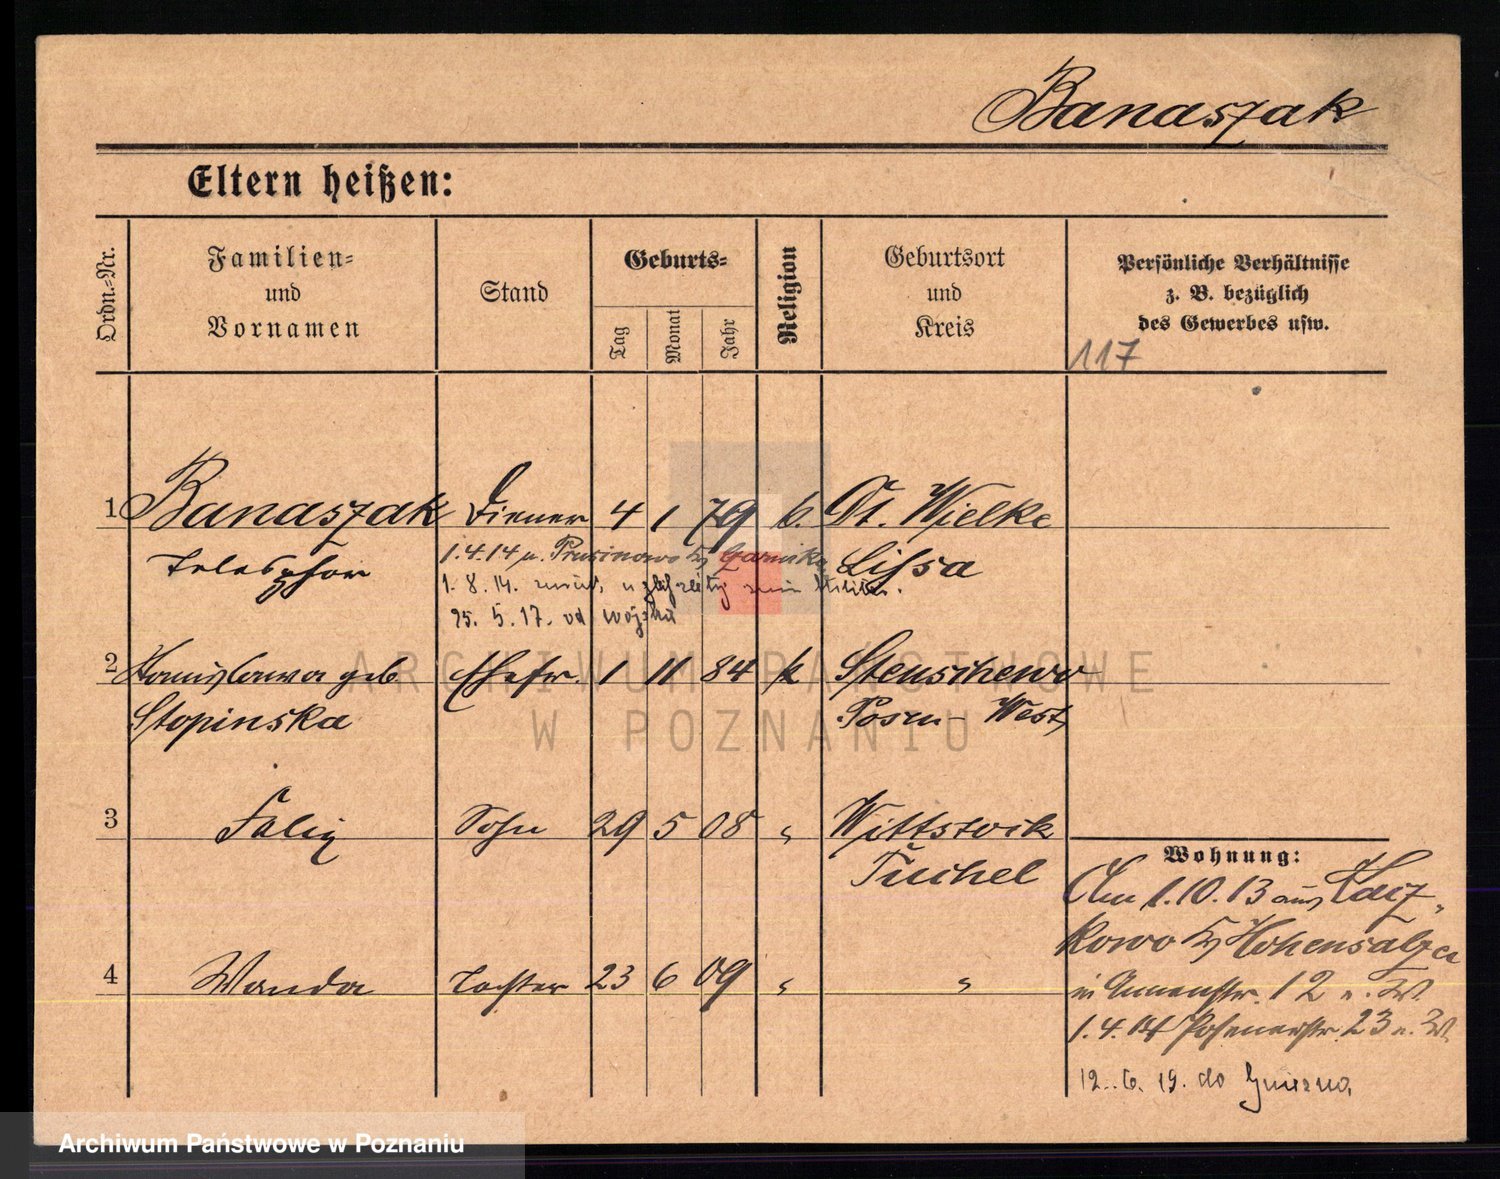 Banaszak
Eltern heißen:
Ordn.-Nr.
Familien-
und
Vornamen
Stand
Geburts-
Tag
Monat
Jahr
Religion
Geburtsort
und
Kreis
Persönliche Verhältnisse
z. B. bezüglich
des Gewerbes usw.
117
1 Banaszak Diener 4 1 79 k. Dt. Wielke
Telesphor
1.4.14 n. Prusinowo Kr
Lissa
1. 8. 14. zurück
25. 5. 17. od wojska
2 Stanislawa geb. Ehefr. 1 11 84 k Stenschewo
Stopinska Posen-West
3 Felix Sohn 29 5 08 " Wittstock
Tuchel
4 Wanda Tochter 23 6 09 " "
Wohnung:
Am 1.10.13 aus
kowo Kr Hohensalza
in 12 n. W
1.4.14 Posenerstr. 23 n. W
12. 6. 19. do Gniezna
ARCHIWUM PAŃSTWOWE
W POZNANIU
Archiwum Państwowe w Poznaniu